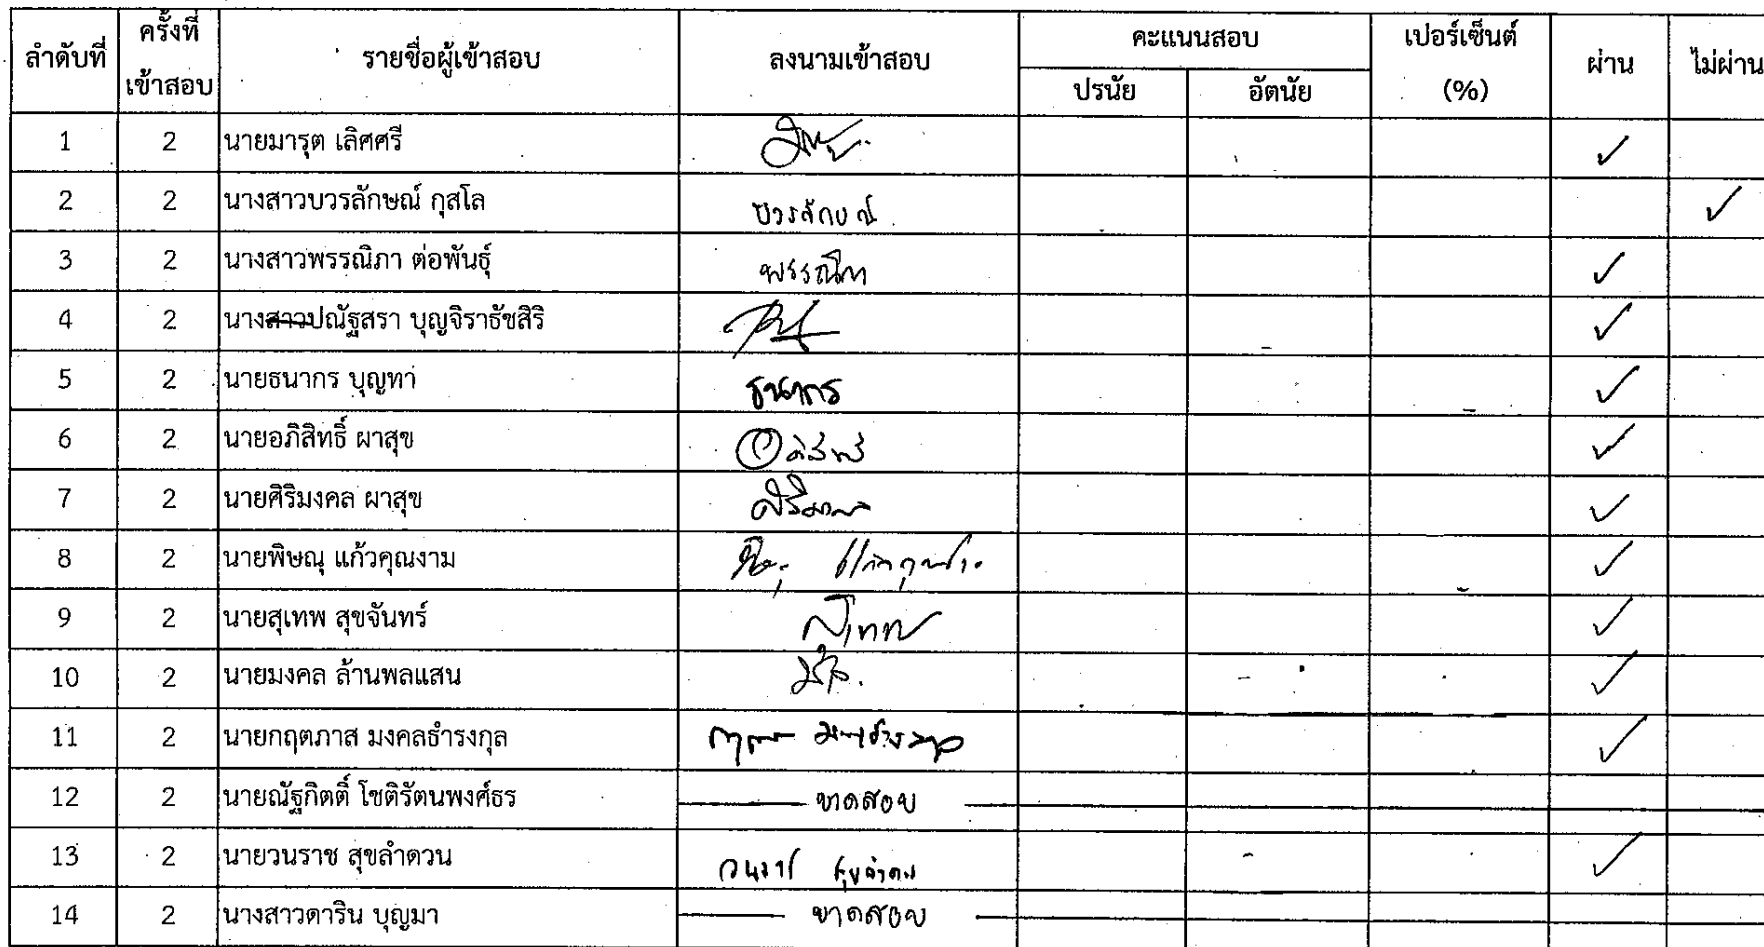 ลำดับที่ ครั้งที่เข้าสอบ รายชื่อผู้เข้าสอบ ลงนามเข้าสอบ คะแนนสอบ เปอร์เซ็นต์ (%) ผ่าน ไม่ผ่าน
ปรนัย อัตนัย
1 2 นายมารุต เลิศศรี ✓
2 2 นางสาวบวรลักษณ์ กุสโล บวรลักษณ์ ✓
3 2 นางสาวพรรณิภา ต่อพันธุ์ พรรณิภา ✓
4 2 นางสาวปณัฐสรา บุญจิราธัชสิริ ✓
5 2 นายธนากร บุญทา ธนากร ✓
6 2 นายอภิสิทธิ์ ผาสุข ✓
7 2 นายศิริมงคล ผาสุข ✓
8 2 นายพิษณุ แก้วคุณงาม ✓
9 2 นายสุเทพ สุขจันทร์ สุเทพ ✓
10 2 นายมงคล ล้านพลแสน ✓
11 2 นายกฤตภาส มงคลธำรงกุล ✓
12 2 นายณัฐกิตติ์ โชติรัตนพงศ์ธร ขาดสอบ
13 2 นายวนราช สุขลำดวน วนราช สุขลำดวน ✓
14 2 นางสาวดาริน บุญมา ขาดสอบ